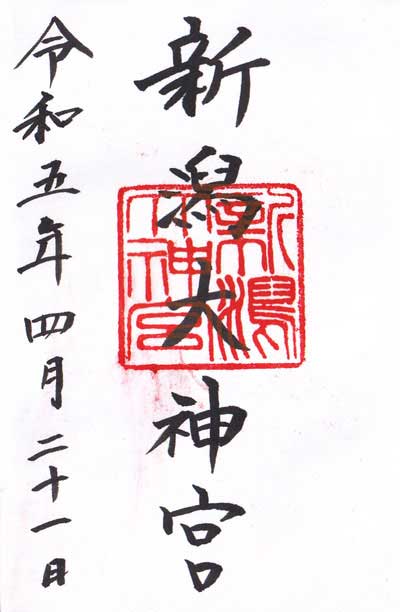 新潟大神宮
新潟大神宮
令和五年四月二十一日